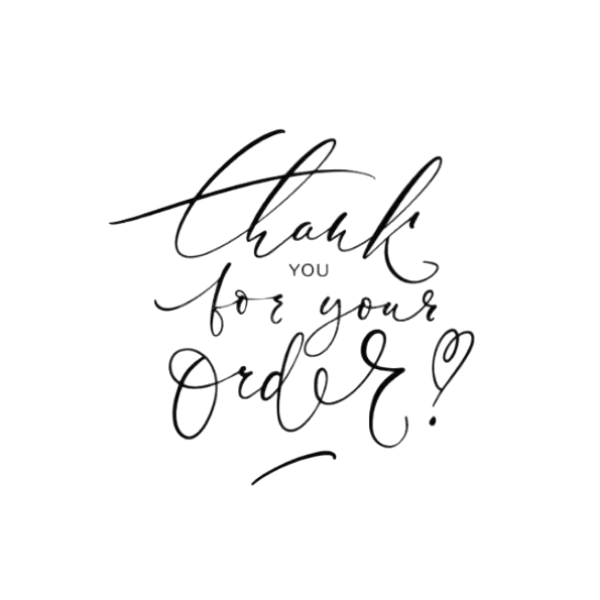 thank
YOU
for your
order!